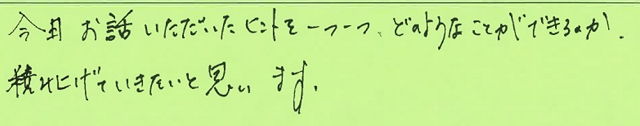 今日お話いただいたヒントを一つ一つ、どのようなことができるのか、
積み上げていきたいと思います。